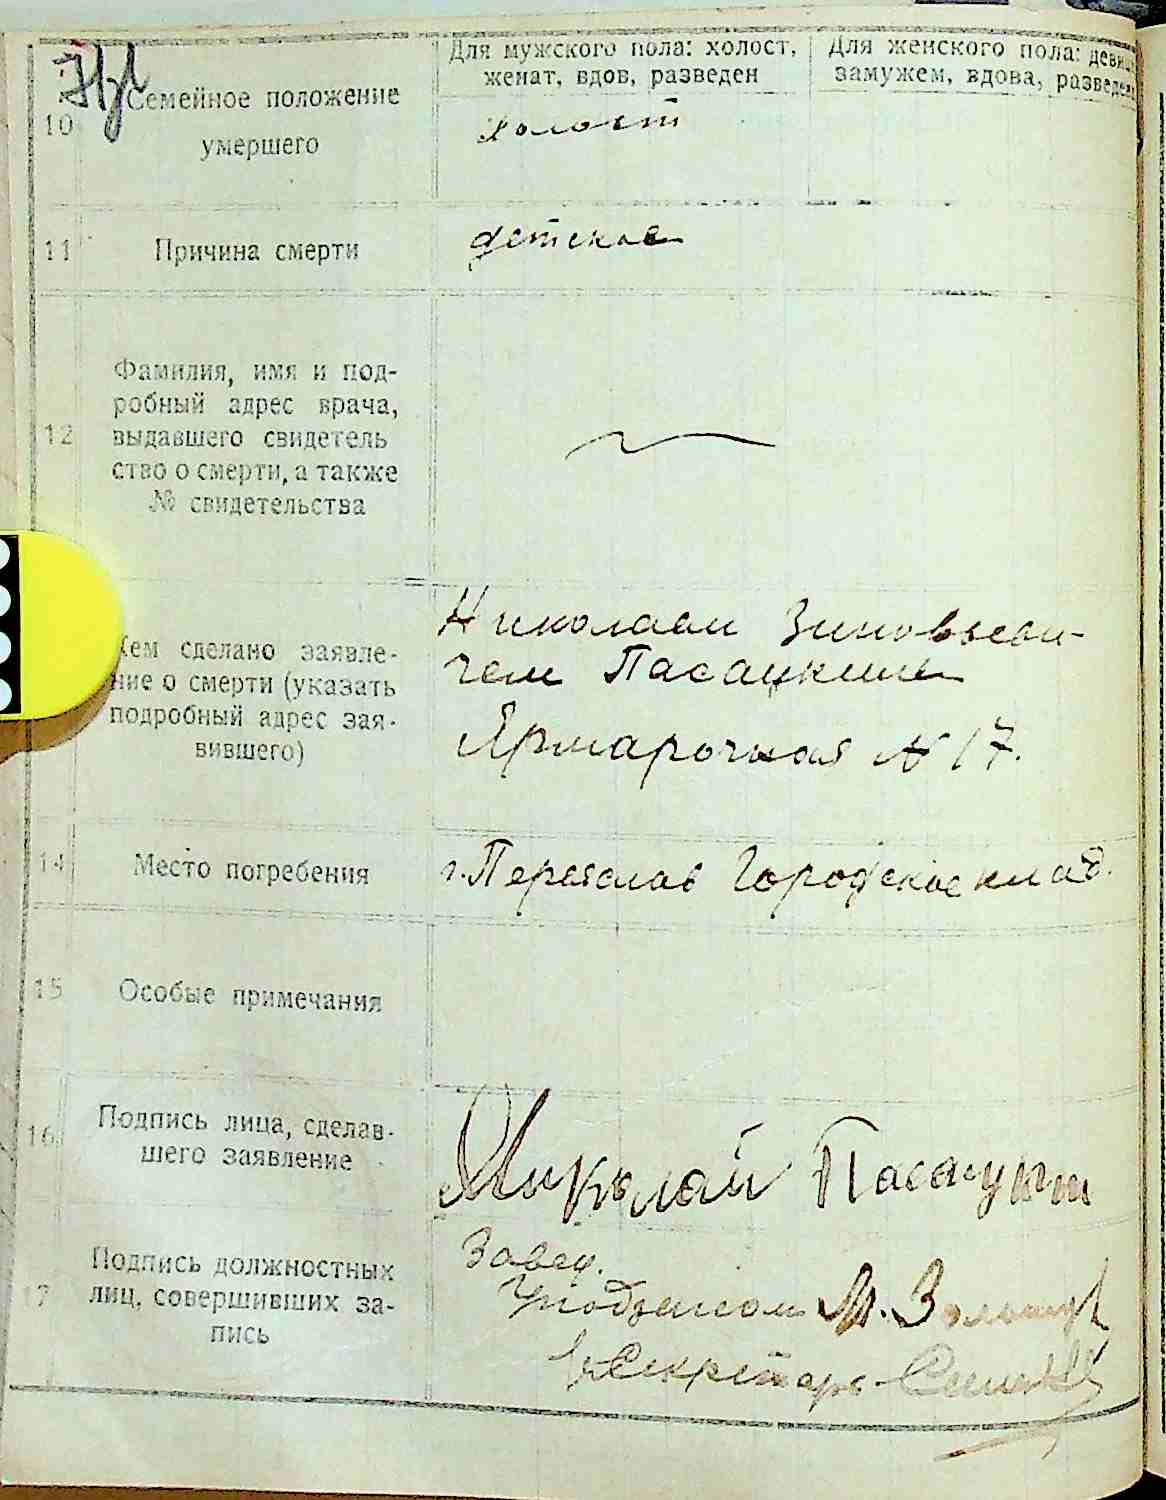 Для мужского пола: холост,
женат, вдов, разведен
Для женского пола: девица
замужем, вдова, разведен
10
Семейное положение
умершего
холост
11
Причина смерти
детское
12
Фамилия, имя и под-
робный адрес врача,
выдавшего свидетель
ство о смерти, а также
№ свидетельства
Кем сделано заявле-
ние о смерти (указать
подробный адрес зая-
вившего)
Николаем Зиновьеви-
чем Пасацким
Ярмарочная № 17.
14
Место погребения
г. Переяслав Городское клад.
15
Особые примечания
16
Подпись лица, сделав-
шего заявление
Николай
17
Подпись должностных
лиц, совершивших за-
пись
Завед.
Секретарь